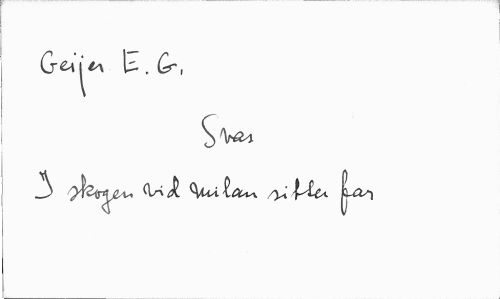 Geijer E. G.
Svar
I skogen vid milan sitter far